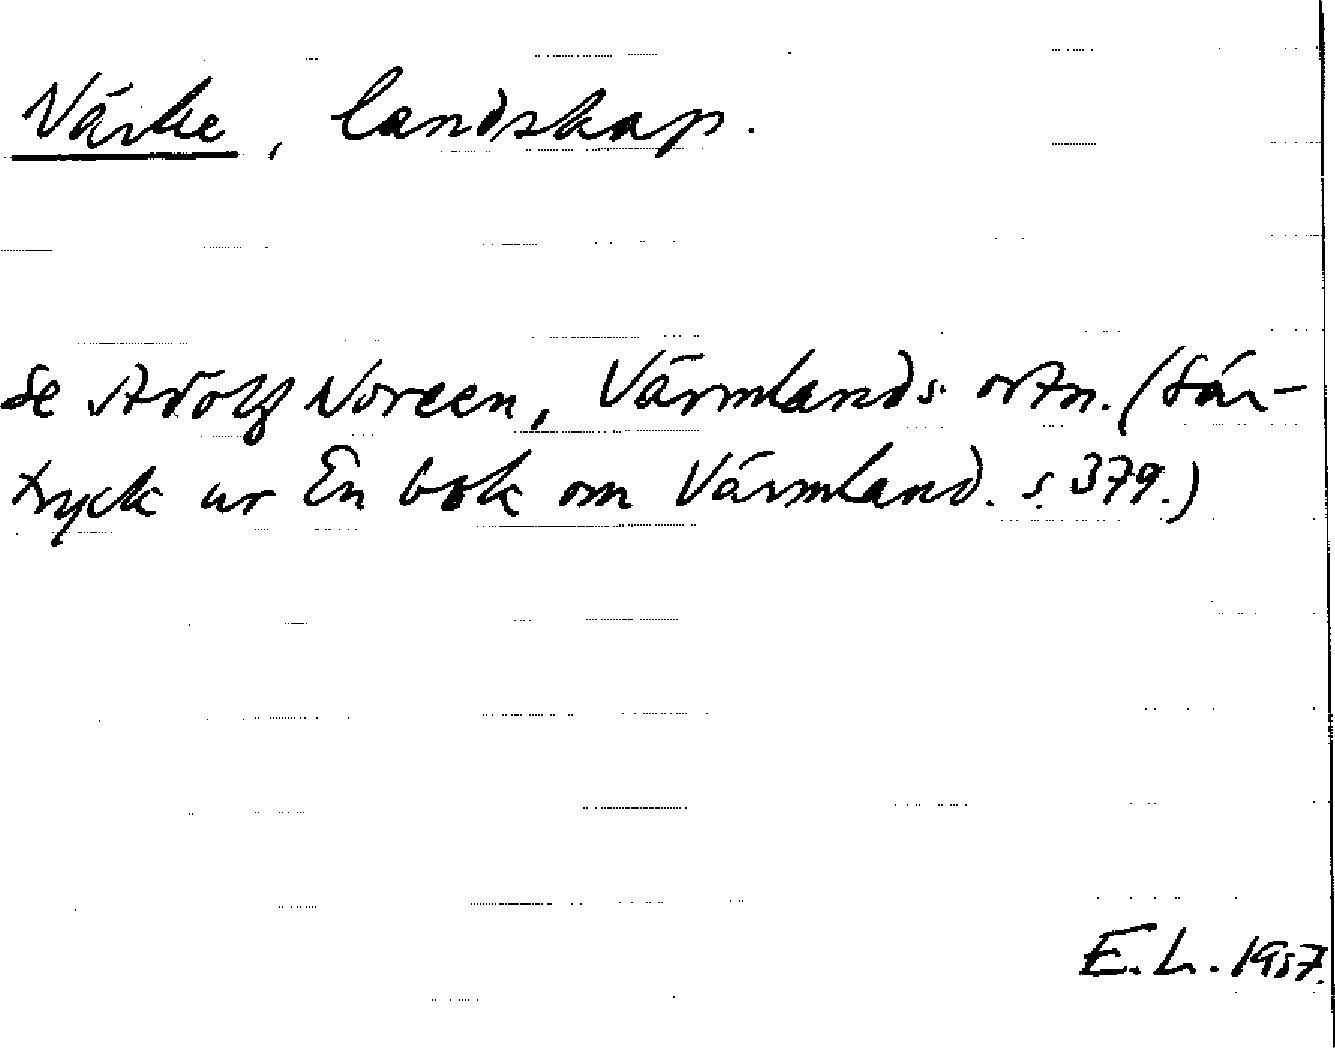 Närke, landskap.
Se Adolf Noreen, Värmlands ortn. (Sär-
tryck ur En bok om Värmland. s. 379.)
E.L. 1957.